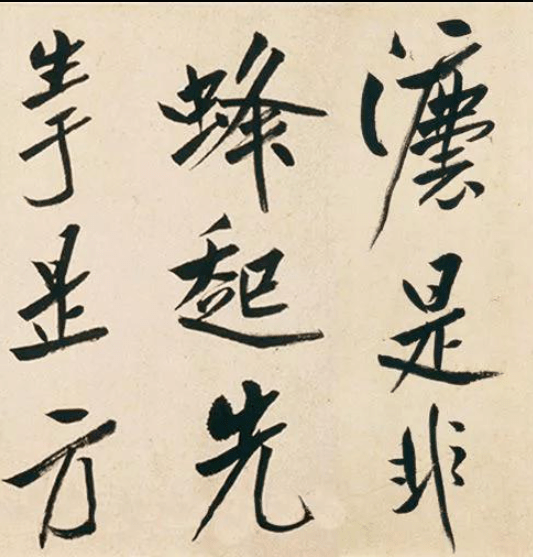 灋是非
蜂起先
生于是方